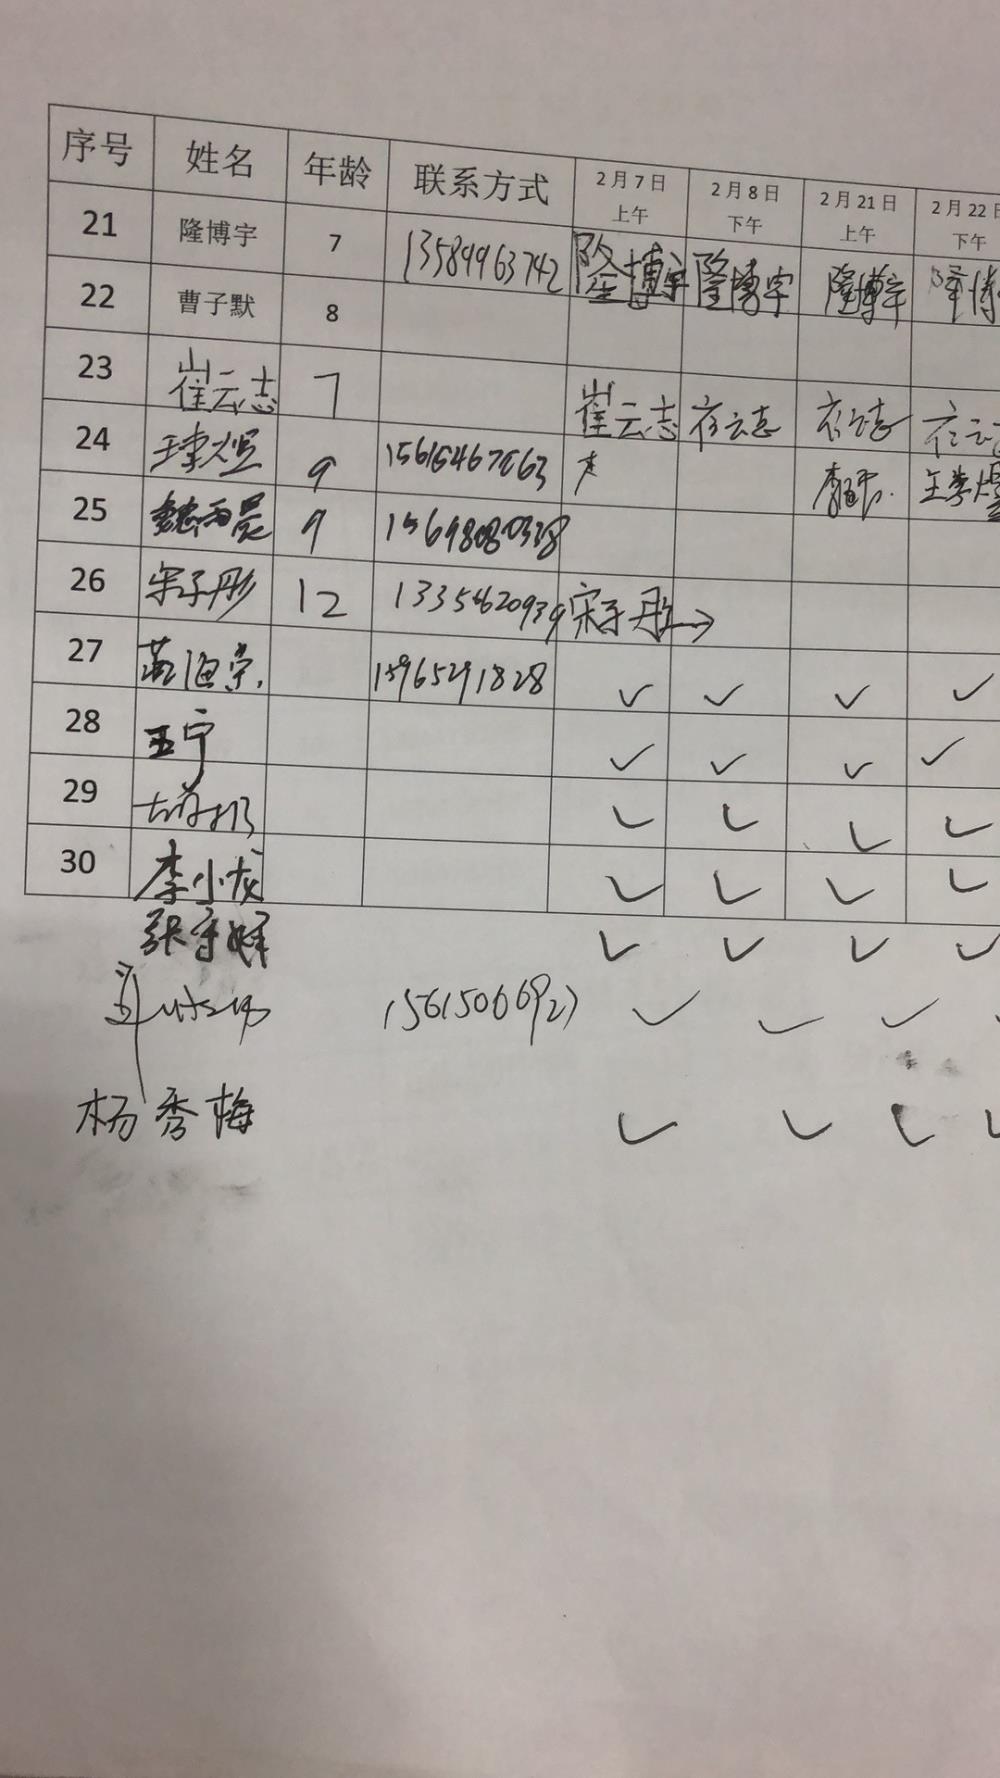 序号 姓名 年龄 联系方式 2月7日上午 2月8日下午 2月21日上午 2月22日下午
21 隆博宇 7 13589963742 隆博宇 隆博宇 隆博宇 隆博
22 曹子默 8
23 崔云志 7 崔云志 崔云志 崔云志 崔云志
24 9 王李煜
25 魏雨晨 9
26 宋子彤 12 宋子彤 →
27 15965291828 ✓ ✓ ✓ ✓
28 王宁 ✓ ✓ ✓ ✓
29 ✓ ✓ ✓ ✓
30 李小龙 ✓ ✓ ✓ ✓
张 ✓ ✓ ✓ ✓
15615066927 ✓ ✓ ✓
杨秀梅 ✓ ✓ ✓